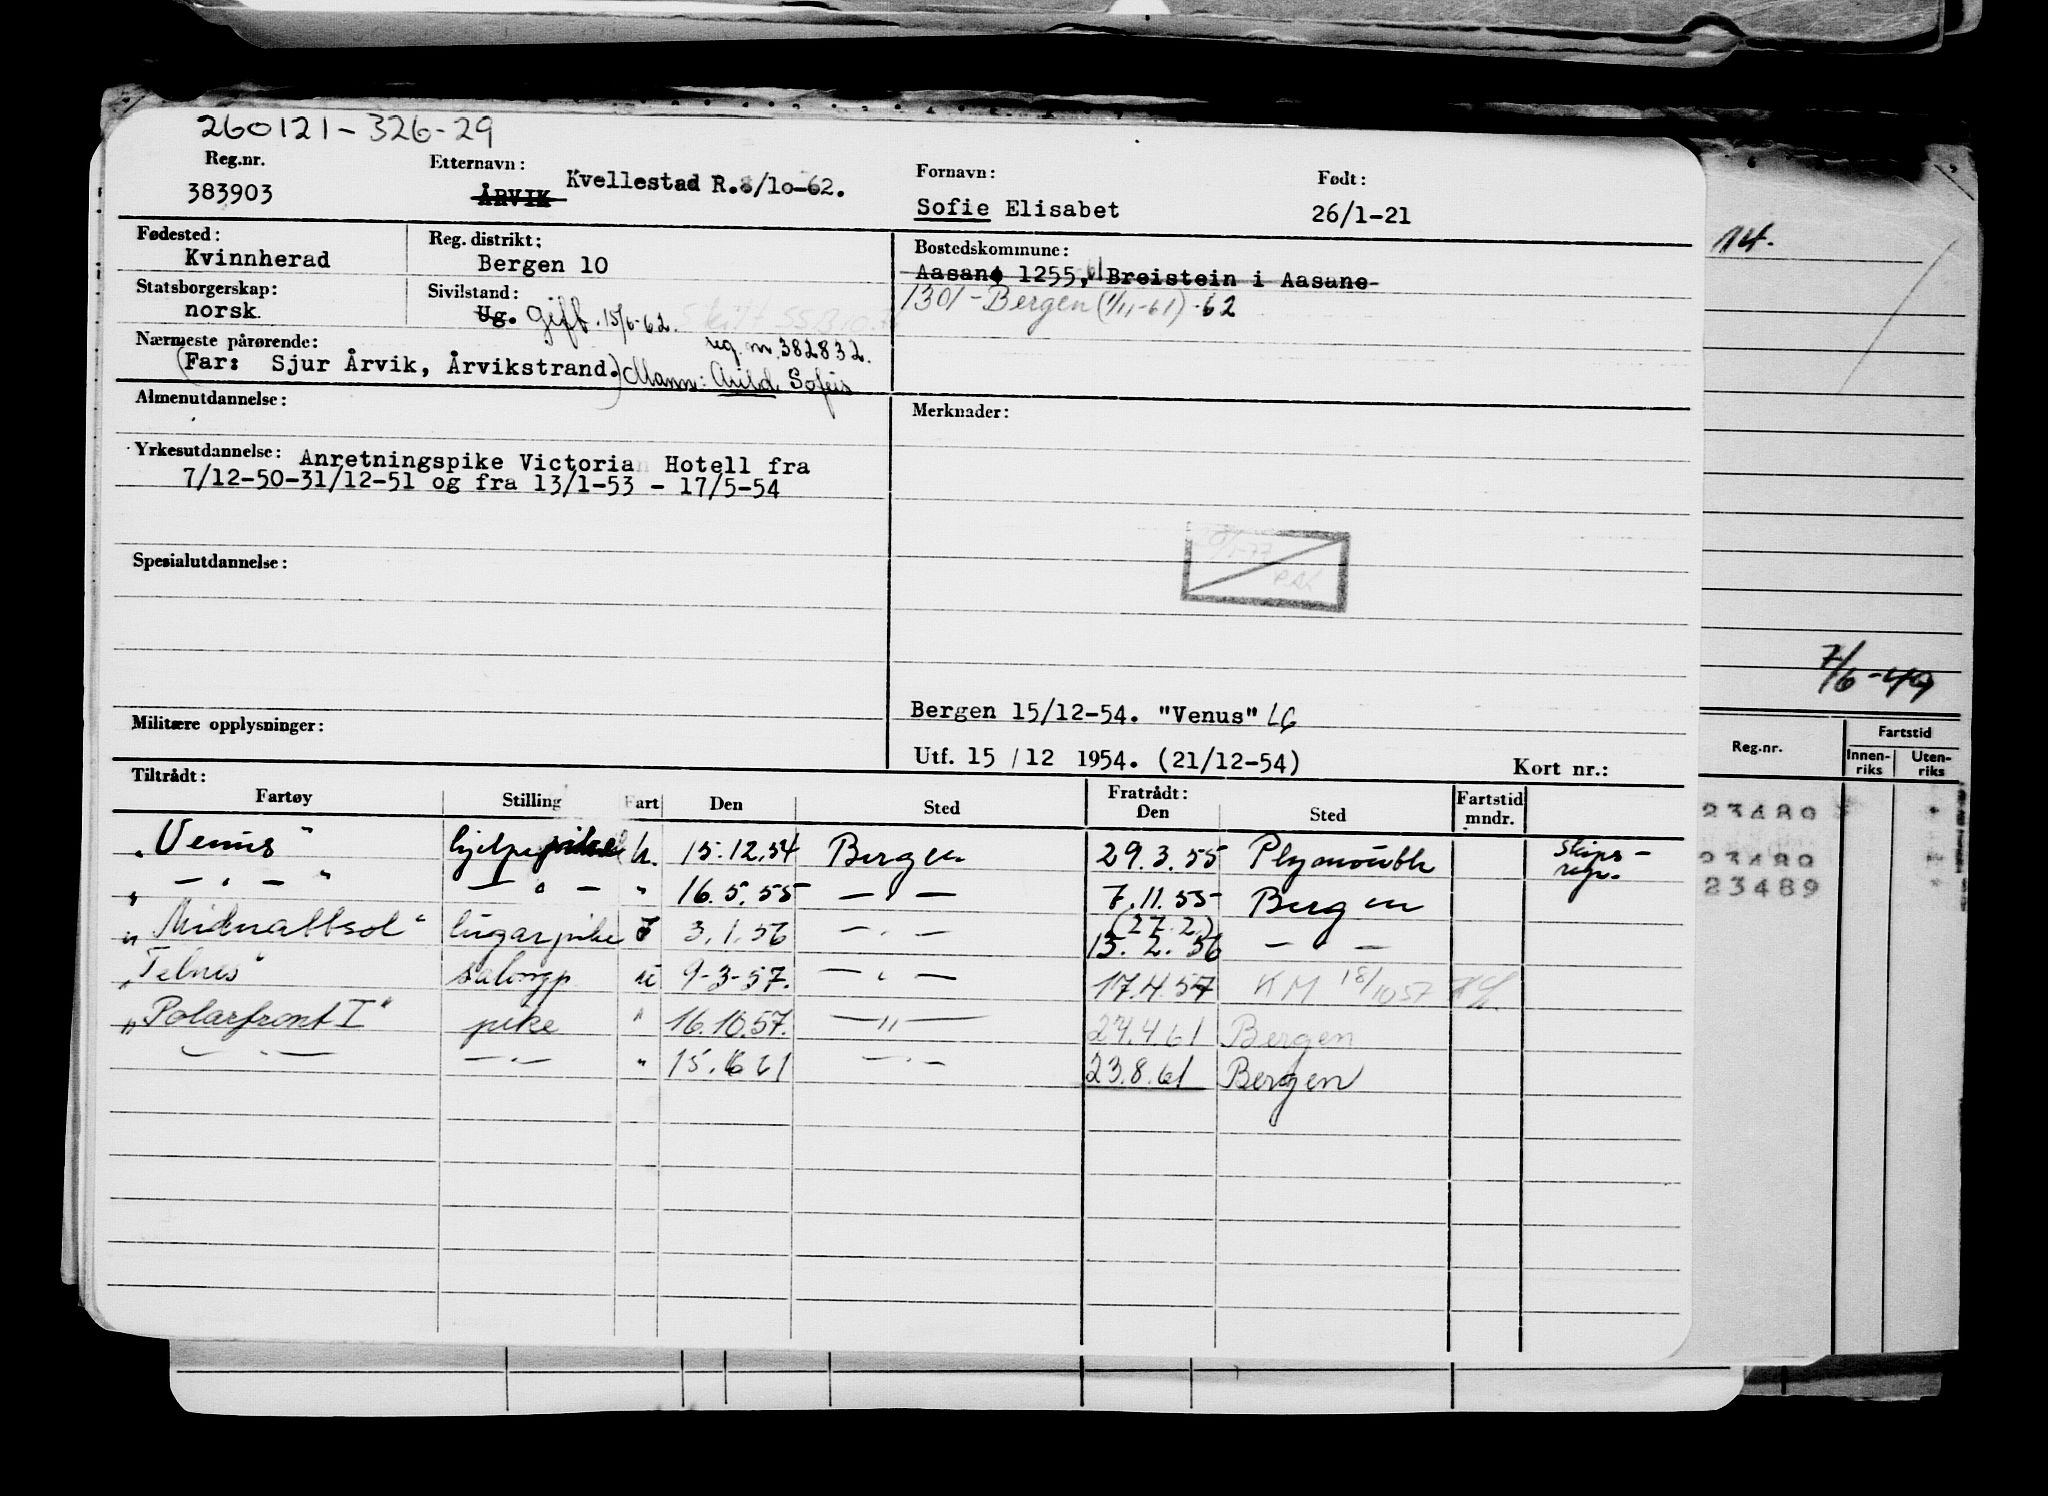 260121-326-29
Reg.nr. Etternavn: Fornavn: Født:
383903 ÅRVIK Kvellestad R.8/10-62. Sofie Elisabet 26/1-21
Fødested: Reg. distrikt: Bostedskommune:
Kvinnherad Bergen 10 Aasane 1255, Breistein i Aasane
Statsborgerskap: Sivilstand: 1301-Bergen (1/11-61) -62
norsk Ug. Gift. 15/6-62.
Nærmeste pårørende: reg. nr. 382832.
(Far: Sjur Årvik, Årvikstrand.) Mann: Arild Sofeis
Almenutdannelse: Merknader:
Yrkesutdannelse: Anretningspike Victoria Hotell fra
7/12-50-31/12-51 og fra 13/1-53 - 17/5-54
Spesialutdannelse:
Bergen 15/12-54. "Venus" LG
Militære opplysninger:
Utf. 15 / 12 1954. (21/12-54) Kort nr.:
Tiltrådt: Fratrådt: Fartstid
Fartøy Stilling Fart Den Sted Den Sted mndr.
"Venus" hjelpepike u. 15.12.54 Bergen 29.3.55 Plymouth Skips-
regn.
" — " — " — " — " 16.5.55 — " — 7.11.55 Bergen
(27.2)
"Midnattsol" lugarpike I 3.1.56 — " — 13.2.56 — " —
"Telnes" salongp. u 9-3-57. — " — 17.4.57 KM 18/10 57
"Polarfront I" pike " 16.10.57. — " — 27.4.61 Bergen
— " — — " — " 15.6 61 — " — 23.8.61 Bergen
14.
7/6-49
Reg.nr. Fartstid
Innen-
riks Uten-
riks
23489
23489
23489